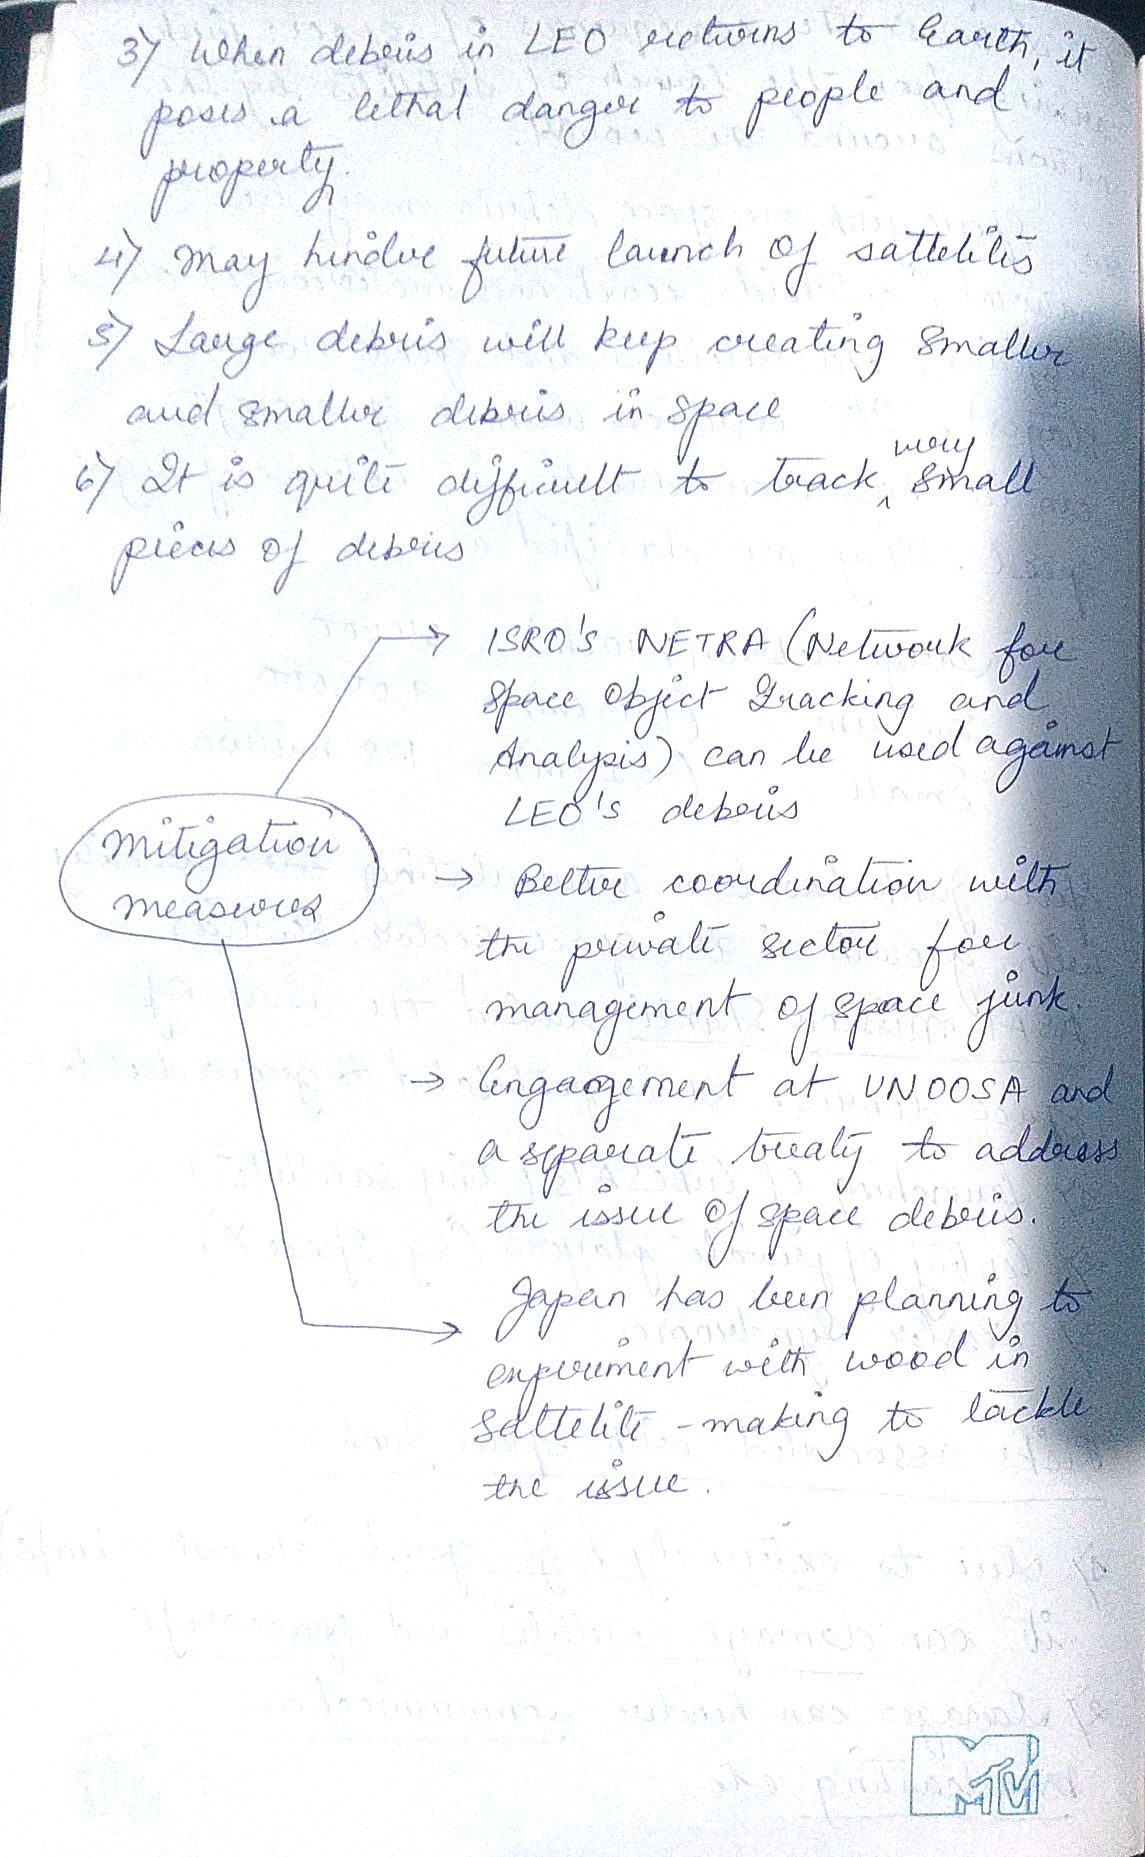 3) When debris in LEO returns to Earth, it
poses a lethal danger to people and
property.
4) May hinder future launch of sattelites
5) Large debris will keep creating smaller
and smaller debris in space
6) It is quite difficult to track very small
pieces of debris
ISRO'S NETRA (Network for
Space Object Tracking and
Analysis) can be used against
LEO's debris
Mitigation
measures
→ Better coordination with
the private sector for
management of space junk
→ Engagement at UNOOSA and
a separate treaty to address
the issue of space debris.
Japan has been planning to
experiment with wood in
Sattelite-making to tackle
the issue.
MTV